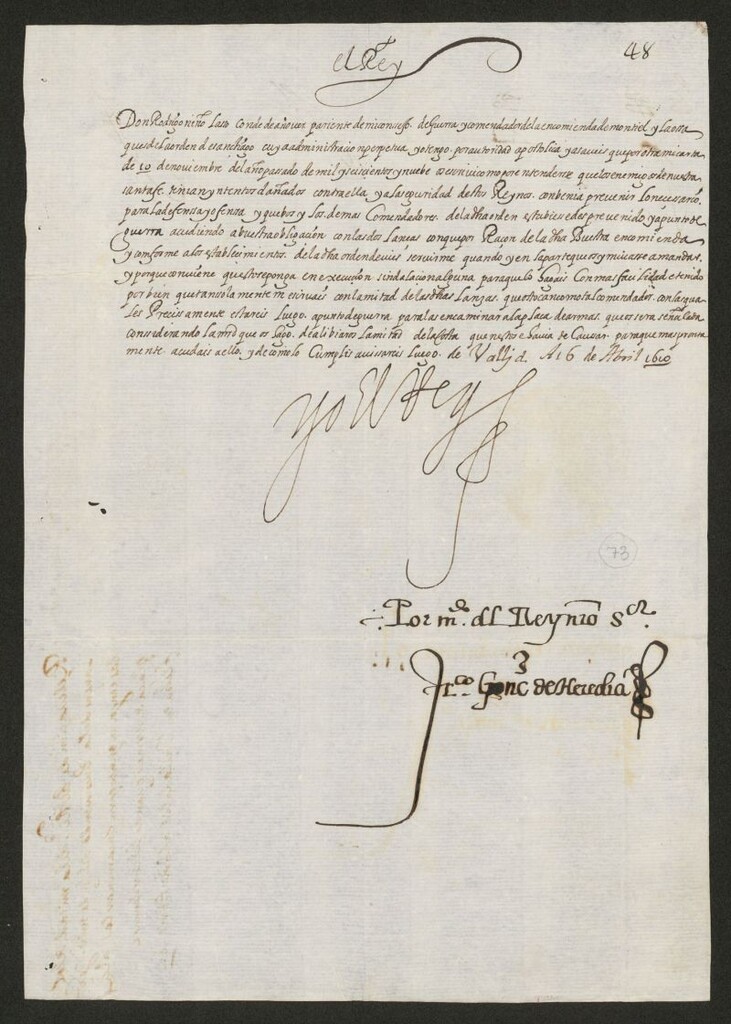 el Rey
48
Don Rodrigo niño Laso conde de añover pariente de mi consejo de Guerra y comendador de la encomienda de montiel y La ossa
que es de La orden de sanctiago cuya administracion perpetua yo tengo por autoridad apostolica ya saueis que por otra mi carta
de 10 de noviembre del año passado de mil y seiscientos y nuebe os escriui como por entenderse que los enemigos de nuestra
santa fe tenian yntentos dañados contra ella y a La seguridad de estos Reynos conbenia prevenir Lo necesario
para La defensa y ofensa y que bos y Los demas Comendadores de la dha orden estubiesedes prevenidos y a punto de
guerra acudiendo a buestra obligaçion con las dos Lanças con que por Raçon de la dha Buestra encomienda
y conforme a los establecimientos de la dha orden deueis seruirme quando y en la parte que os y mi casse a mandar
y porque conviene que esto se ponga en execuçion sin dalacion alguna para que lo hagais Con mas facilidad e tenido
por bien que tan solamente me siruais con la mitad de las dhas Lanzas que os tocan como tal comendador con las qua
Les Precisamente estareis Luego a punto de guerra para las encaminar a la plaça de armas que os sera señalada
considerando La mrd que os hago de alibiaros La mitad de la costa que en esto se hauia de Causar para que mas pronta
mente acudais a ello y de como lo Cumplis auisareis Luego de Vallid A 16 de Abril 1610
yo el Rey
73
Por mdo. del Rey nro sor.
Frco. Gonz de Heredia